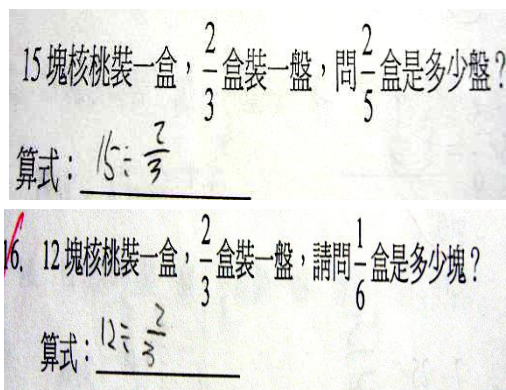 15塊核桃裝一盒，2/3盒裝一盤，問2/5盒是多少盤？
算式：15÷2/3
16. 12塊核桃裝一盒，2/3盒裝一盤，請問1/6盒是多少塊？
算式：12÷2/3